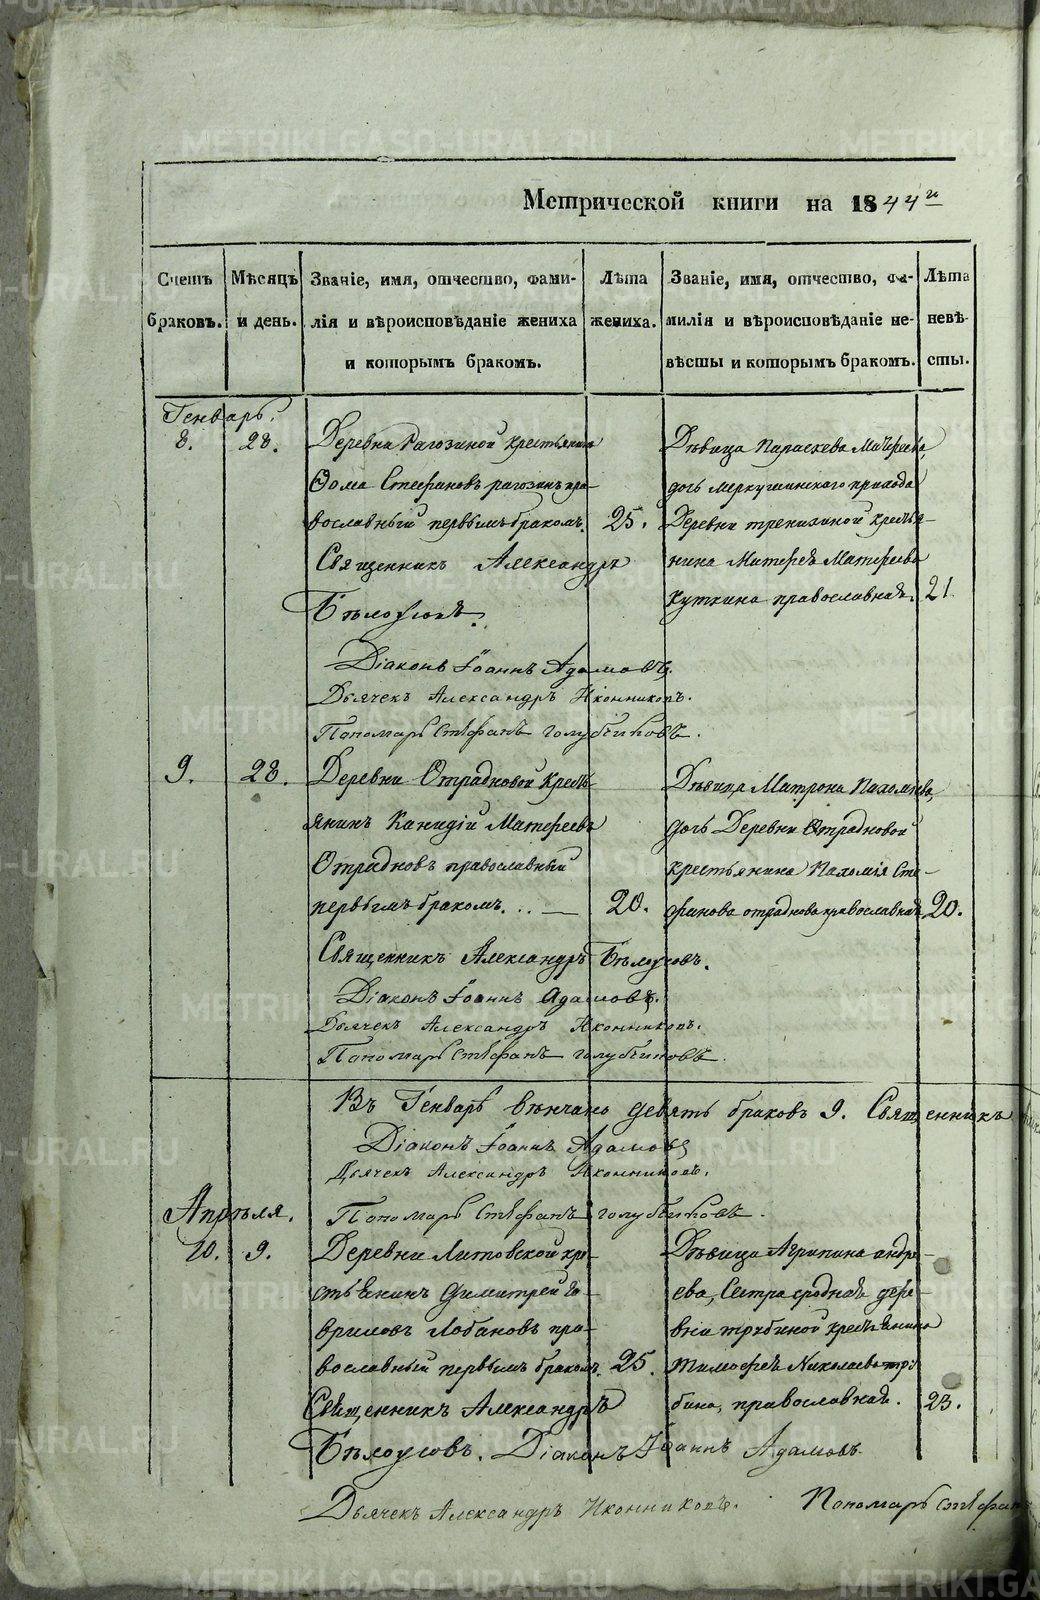 METRIKI.GASO-URAL.RU
Метрической книги на 1844й
Счетъ браковъ.
Мѣсяцъ и день.
Званіе, имя, отчество, фами-
лія и вѣроисповѣданіе жениха
и которымъ бракомъ.
Лѣта жениха.
Званіе, имя, отчество, фа-
милія и вѣроисповѣданіе не-
вѣсты и которымъ бракомъ.
Лѣта невѣ-
сты.
Генварь.
8. 28.
Деревни Рагозиной крестьянинъ
Ѳома Стефановъ рагозинъ пра-
вославный первымъ бракомъ. 25.
Священникъ Александръ
Бѣлоусовъ.
Діаконъ Іоаннъ Адамовъ
Дьячекъ Александръ Иконниковъ.
Пономарь Стефанъ голубчиковъ.
Дѣвица Параскева Матфеева
дочь Меркушинскаго прихода
Деревни
крестья-
нина Матфея Матфеева
православная. 21.
9. 28.
Деревни Отрадновой Кресть-
янинъ Матфеевъ
Отрадновъ православный
первымъ бракомъ. . . — 20.
Священникъ Александръ Бѣлоусовъ.
Діаконъ Іоаннъ Адамовъ.
Дьячекъ Александръ Иконниковъ.
Пономарь Стефанъ голубчиковъ.
Дѣвица Матрона Пахомова,
дочь Деревни Отрадновой
крестьянина Пахомія Сте-
фанова отраднова православная 20.
Въ Генварѣ вѣнчано девять браковъ 9. Священникъ
Діаконъ Іоаннъ Адамовъ
Дьячекъ Александръ Иконниковъ.
Пономарь Стефанъ голубчиковъ.
Апрѣля.
10. 9.
Деревни Литовской кре-
стьянинъ Димитрей Га-
вриловъ Лобановъ пра-
вославный первымъ бракомъ. 25.
Священникъ Александръ
Бѣлоусовъ. Діаконъ Іоаннъ Адамовъ.
Дѣвица Агрипина андре-
ева, Сестра сродная дере-
вни трубиной крестьянина
тимофея Николаева тру-
бина, православная. 23.
Дьячекъ Александръ Иконниковъ. Пономарь Стефанъ